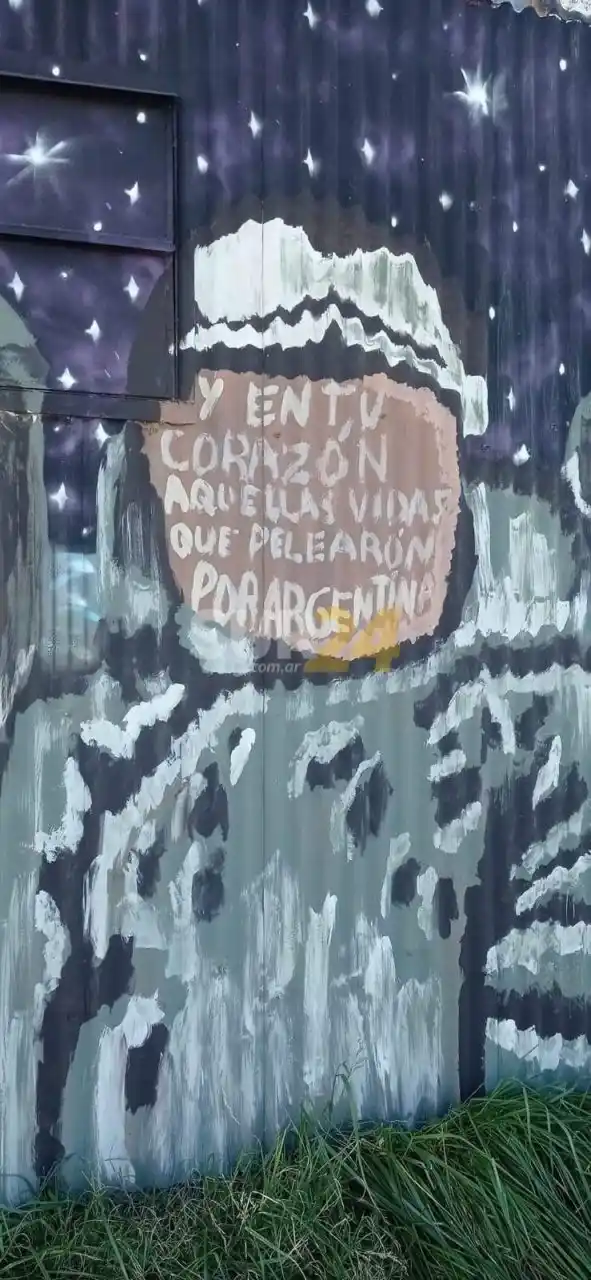 Y EN TU
CORAZÓN
AQUELLAS VIDAS
QUE PELEARÓN
POR ARGENTINA
SUR24
.com.ar